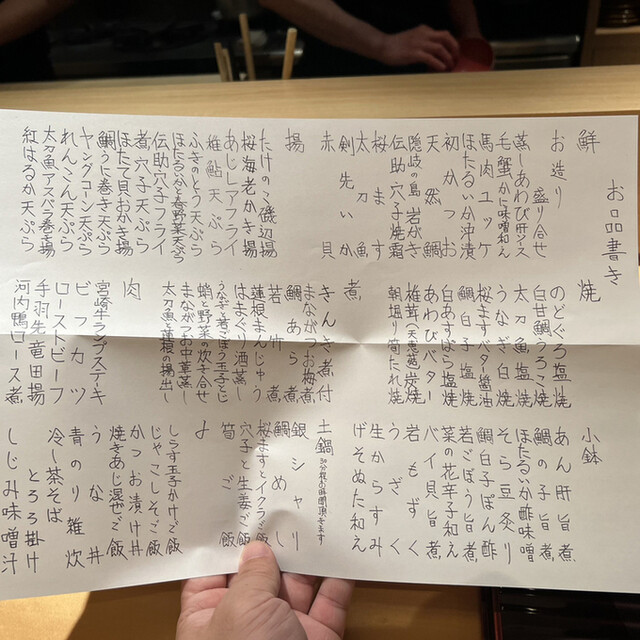 お品書き
鮮
お造り 盛り合せ
蒸しあわび肝ソース
毛蟹かに味噌和え
馬肉ユッケ
ほたるいか沖漬
初かつお
天然鯛
隠岐の島 岩がき
伝助穴子焼霜
桜ます
太刀魚
剣先いか
赤貝
揚
たけのこ磯辺揚
桜海老かき揚
あじレアフライ
稚鮎天ぷら
ふきのとう天ぷら
ほたるいかと春野菜天ぷら
伝助穴子フライ
煮穴子天ぷら
ほたて貝おかき揚
鯛うに巻き天ぷら
ヤングコーン天ぷら
れんこん天ぷら
太刀魚アスパラ巻き揚
紅はるか天ぷら
焼
のどぐろ塩焼
白甘鯛うろこ焼
太刀魚塩焼
うなぎ白焼
桜ますバター醤油
鯛白子塩焼
白あすぱら塩焼
あわびバター
椎茸(天恵菇)炭焼
朝堀り筍たれ焼
煮
きんき煮付
まながつお梅煮
鯛あら煮
若竹煮
蓮根まんじゅう
はまぐり酒蒸し
うなぎと春ごぼう玉子とじ
蛸と野菜の炊き合せ
まながつお中華蒸し
太刀魚と蓮根の揚出し
肉
宮崎牛ランプステーキ
ビフカツ
ローストビーフ
手羽先竜田揚
河内鴨ロース煮
小鉢
あん肝旨煮
鯛の子旨煮
ほたるいか酢味噌
そら豆炙り
鯛白子ぽん酢
若ごぼう旨煮
菜の花辛子和え
バイ貝旨煮
岩もずく
うざく
生からすみ
げそぬた和え
土鍋
銀シャリ
鯛めし
桜ますとイクラご飯
穴子と生姜ご飯
筍ご飯
〆
しらす玉子かけご飯
じゃこしそご飯
かつお漬け丼
焼きあじ混ぜご飯
うな丼
青のり雑炊
冷し茶そば
とろろ掛け
しじみ味噌汁